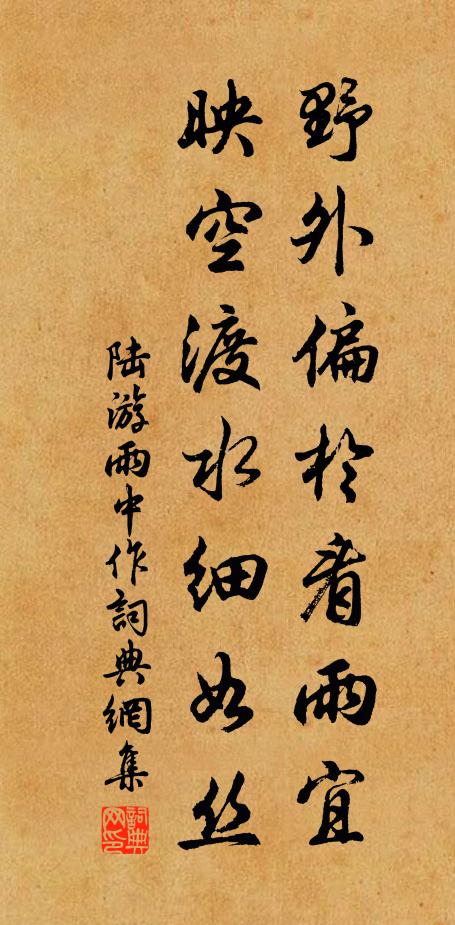 野外偏於看雨宜
映空渡水細如丝
陆游雨中作詞典網集
詞典网印